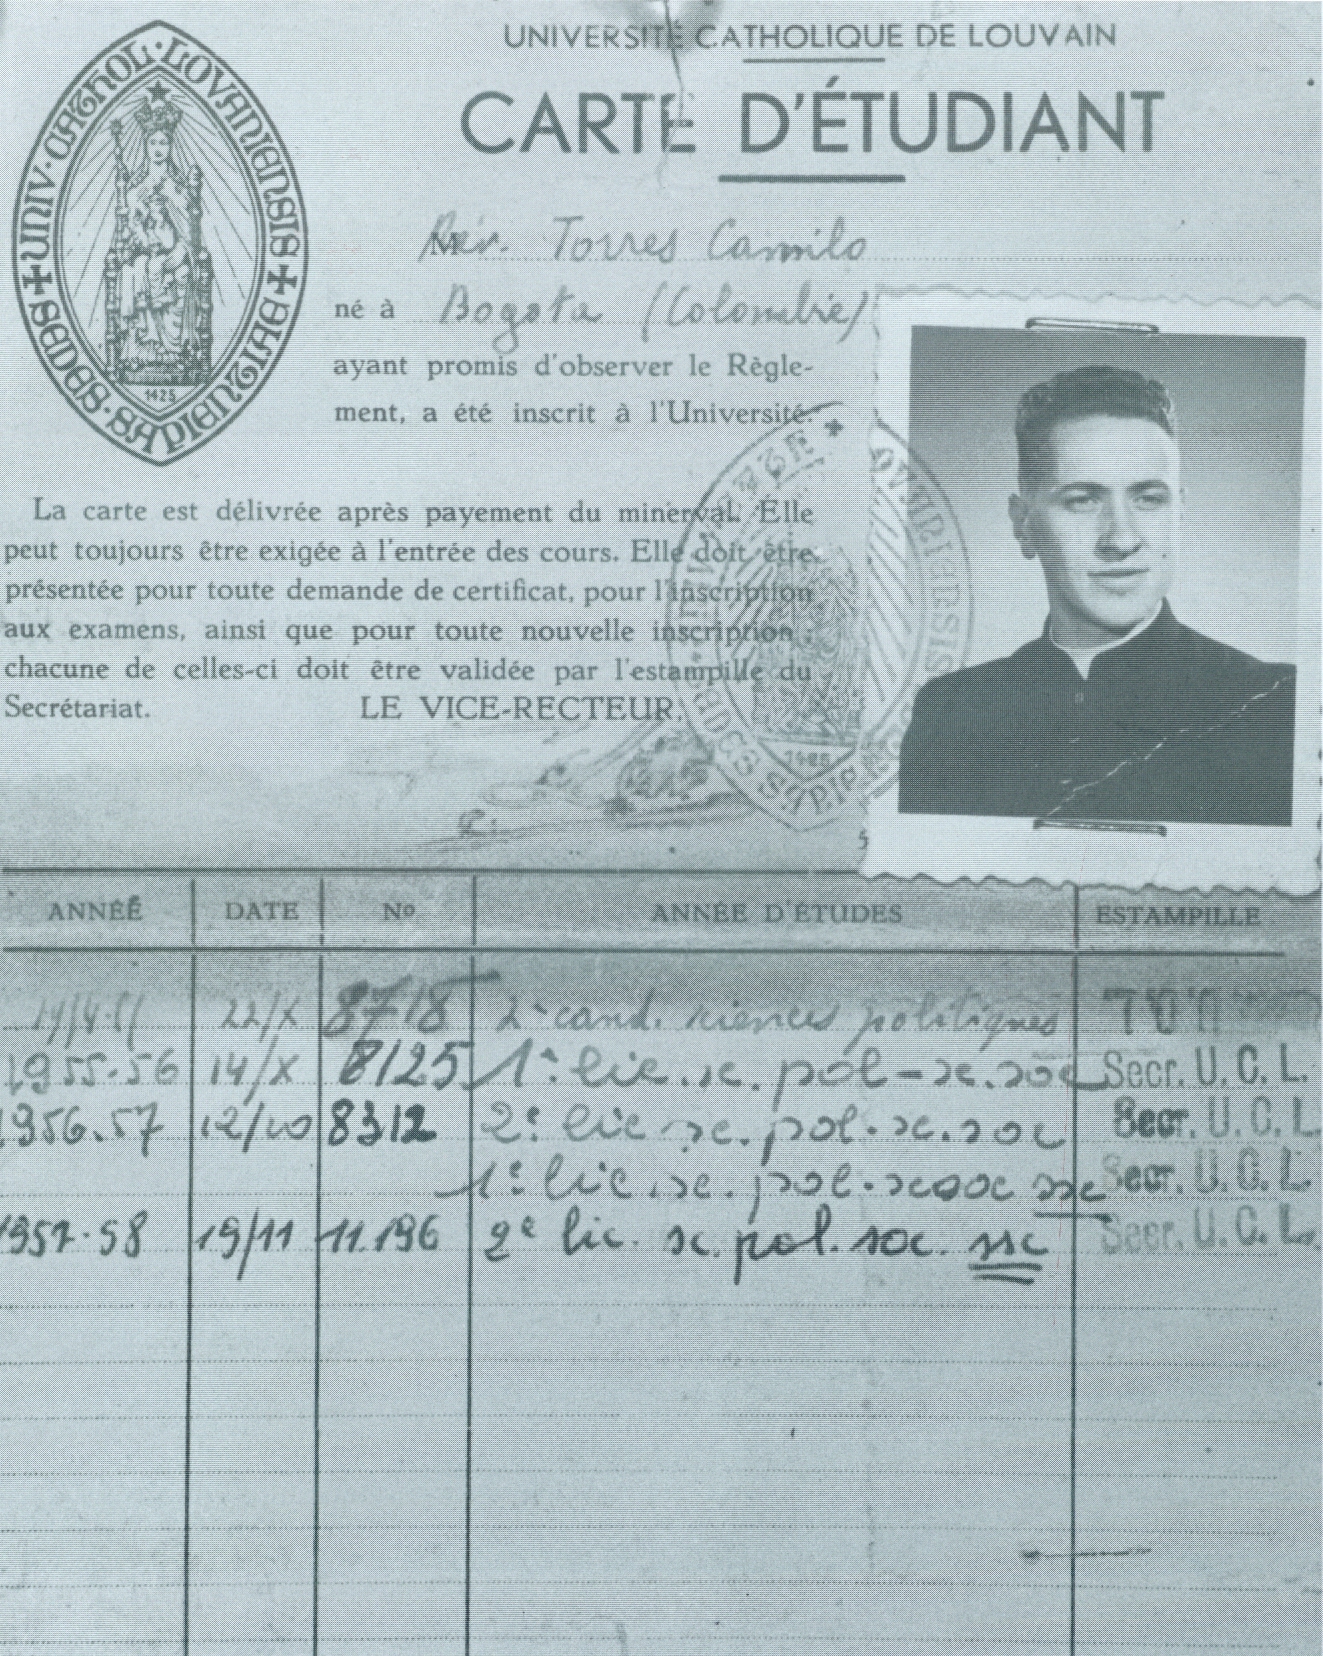 UNIVERSITÉ CATHOLIQUE DE LOUVAIN
CARTE D'ÉTUDIANT
UNIV. CATHOL. LOVANIENSIS
SEDES. SAPIENTIAE
1425
M Rév. Torres Camilo
né à Bogota (Colombie)
ayant promis d'observer le Règle-
ment, a été inscrit à l'Université.
La carte est délivrée après payement du minerval. Elle
peut toujours être exigée à l'entrée des cours. Elle doit être
présentée pour toute demande de certificat, pour l'inscription
aux examens, ainsi que pour toute nouvelle inscription ;
chacune de celles-ci doit être validée par l'estampille du
Secrétariat.
LE VICE-RECTEUR,
ANNÉE DATE No ANNÉE D'ÉTUDES ESTAMPILLE
22/X 8718 2e cand. sciences politiques
1955-56 14/X 8125 1e lic. sc. pol - sc. soc Secr. U. C. L.
1956-57 12/10 8312 2e lic sc. pol. sc. soc Secr. U. C. L.
1e lic. sc. pol. sc soc ssc Secr. U. C. L.
1957-58 19/11 11.196 2e lic. sc. pol. soc. ssc Secr. U. C. L.